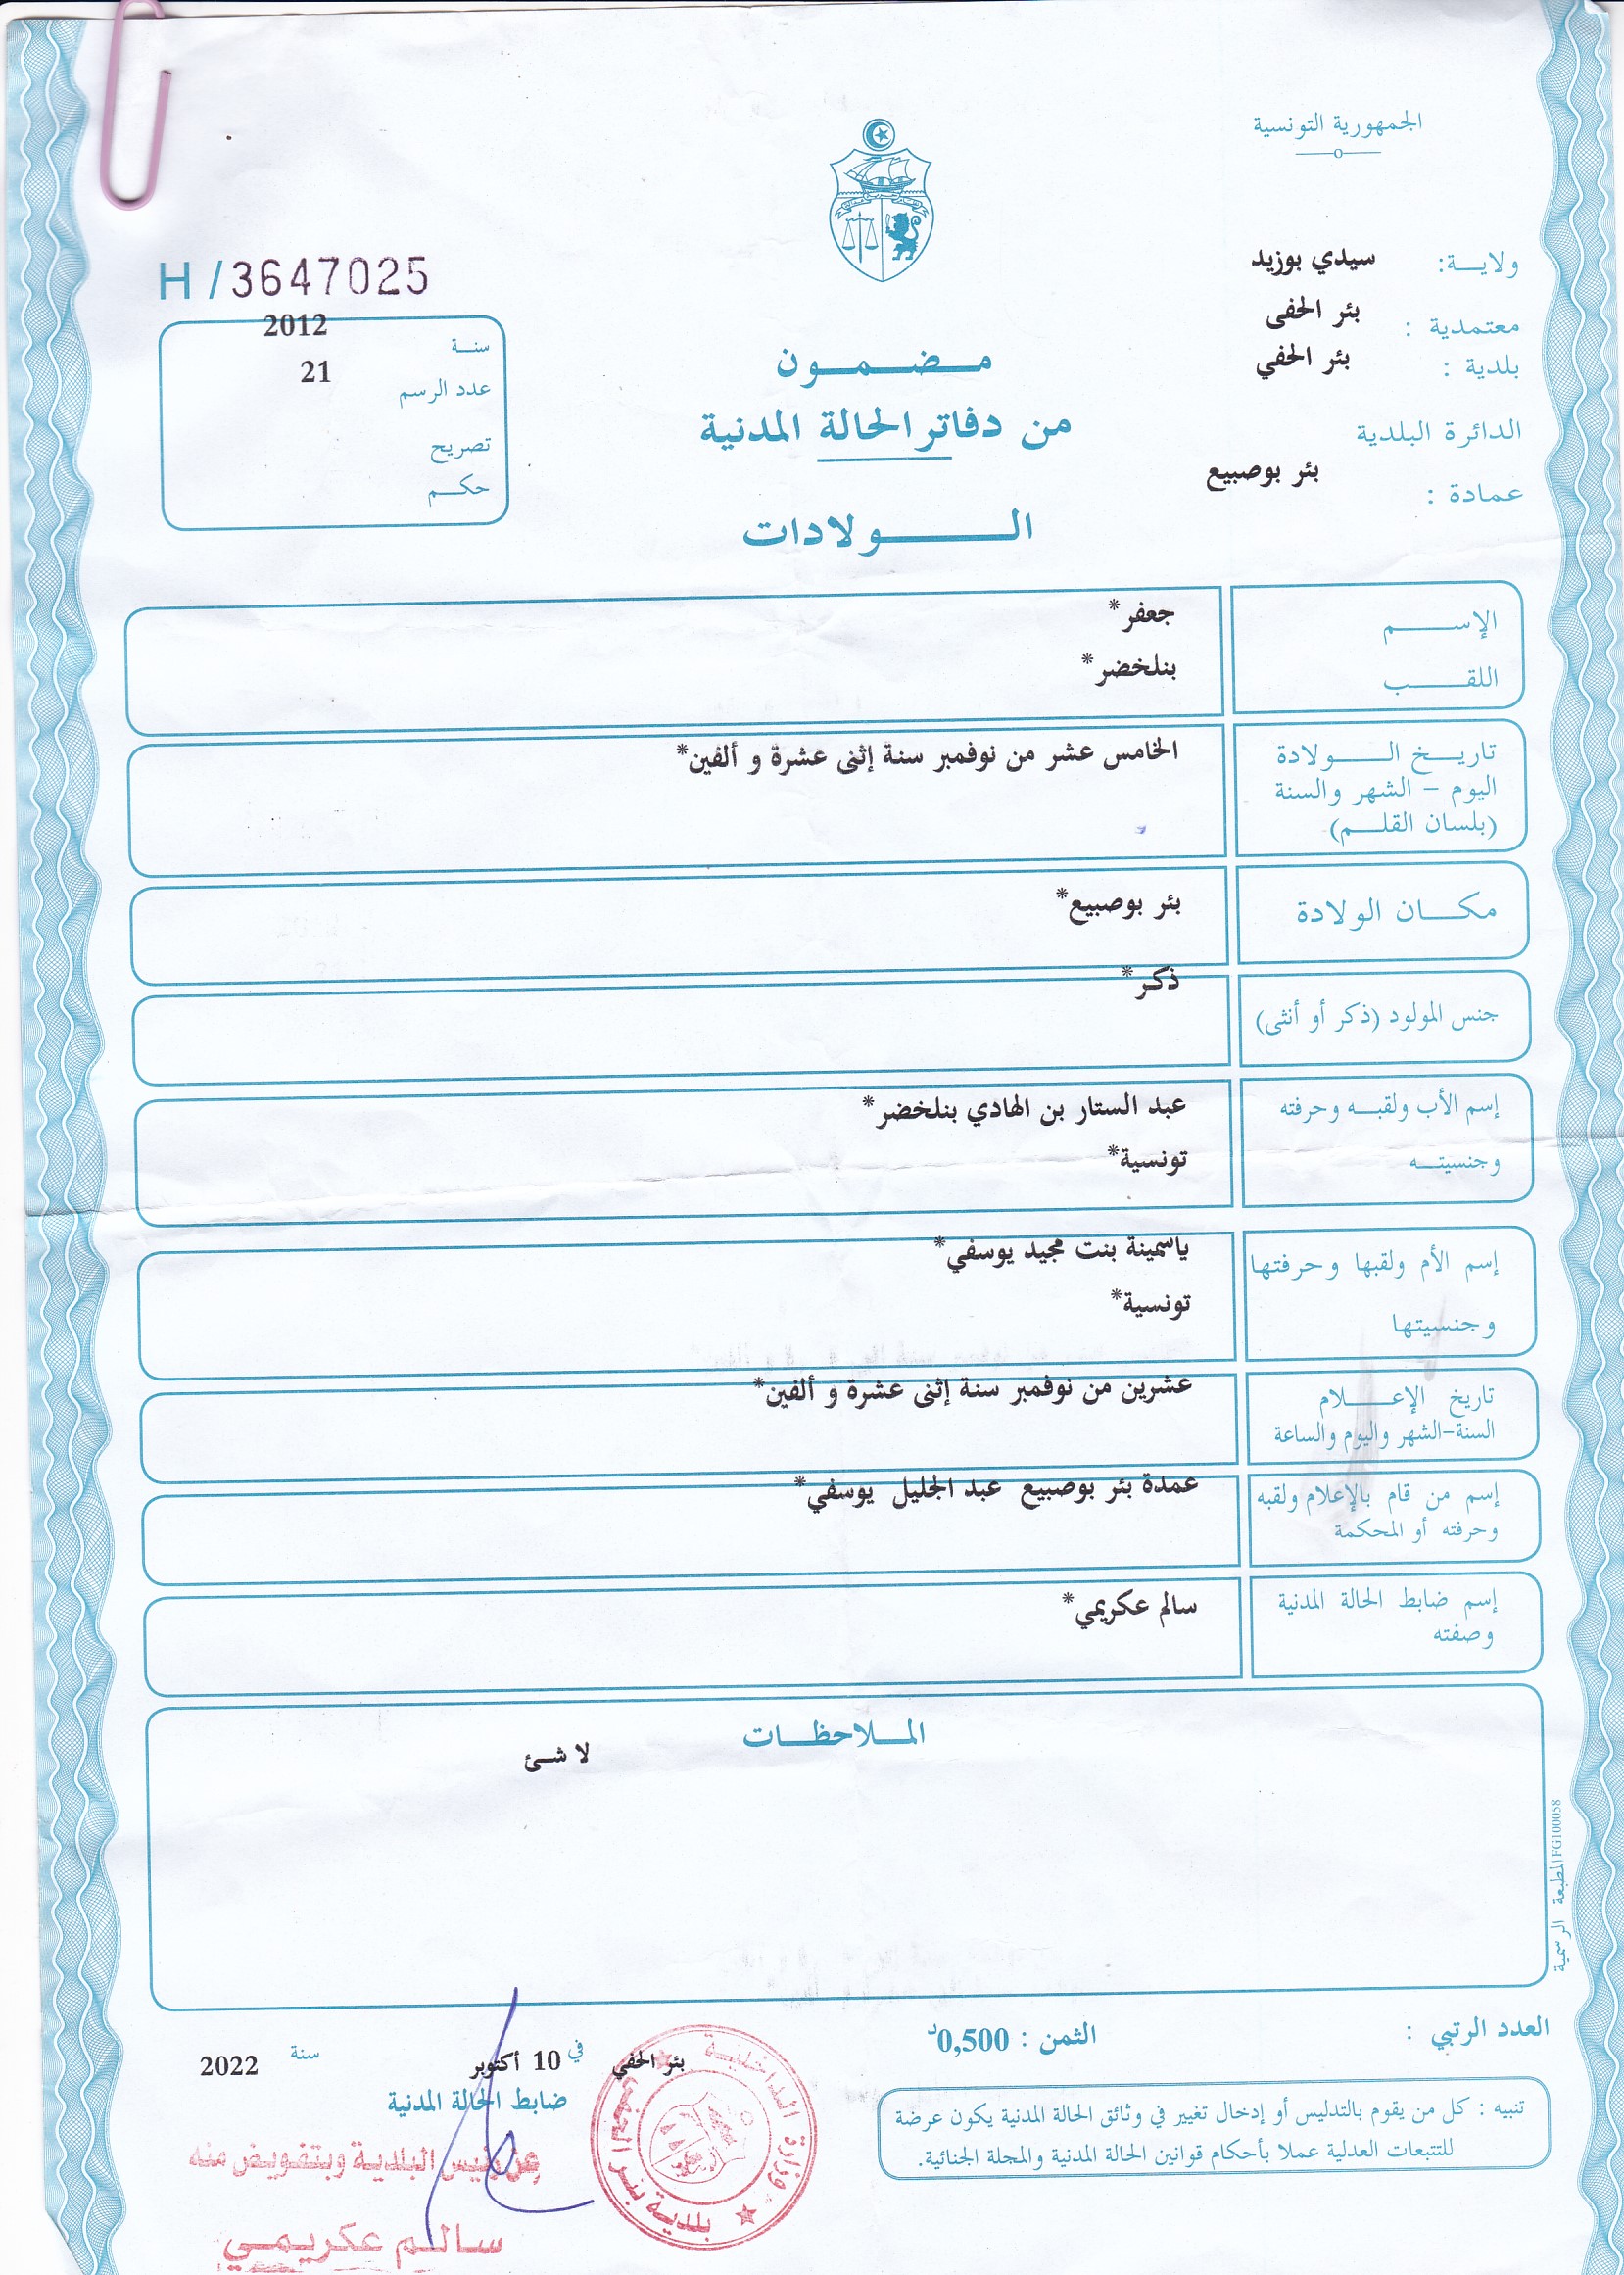 الجمهورية التونسية
ولايـــة: سيدي بوزيد
معتمدية : بئر الحفى
بلدية : بئر الحفي
الدائرة البلدية
عمادة : بئر بوصبيع
H / 3647025
سنــة 2012
عدد الرسم 21
تصريح
حكــم
مــضــمــون
من دفاتر الحالة المدنية
الــــولادات
الإســـــم جعفر*
اللقـــــب بنلخضر*
تاريــخ الـــــولادة الخامس عشر من نوفمبر سنة إثنى عشرة و ألفين*
اليوم - الشهر والسنة
(بلسان القلــم)
مكـــان الولادة بئر بوصبيع*
جنس المولود (ذكر أو أنثى) ذكر*
إسم الأب ولقبــه وحرفته عبد الستار بن الهادي بنلخضر*
وجنسيتــه تونسية*
إسم الأم ولقبها وحرفتها ياسمينة بنت مجيد يوسفي*
وجنسيتها تونسية*
تاريخ الإعـــلام عشرين من نوفمبر سنة إثنى عشرة و ألفين*
السنة-الشهر واليوم والساعة
إسم من قام بالإعلام ولقبه عمدة بئر بوصبيع عبد الجليل يوسفي*
وحرفته أو المحكمة
إسم ضابط الحالة المدنية سالم عكريمي*
وصفته
المــلاحظــات
لا شئ
المطبعة الرسمية FG100058
العدد الرتبي :
الثمن : 0,500د
بئر الحفي في 10 أكتوبر سنة 2022
ضابط الحالة المدنية
عن رئيس البلدية وبتفويض منه
سالم عكريمي
وزارة الداخلية
بلدية بئر الحفي
تنبيه : كل من يقوم بالتدليس أو إدخال تغيير في وثائق الحالة المدنية يكون عرضة
للتتبعات العدلية عملا بأحكام قوانين الحالة المدنية والمجلة الجنائية.